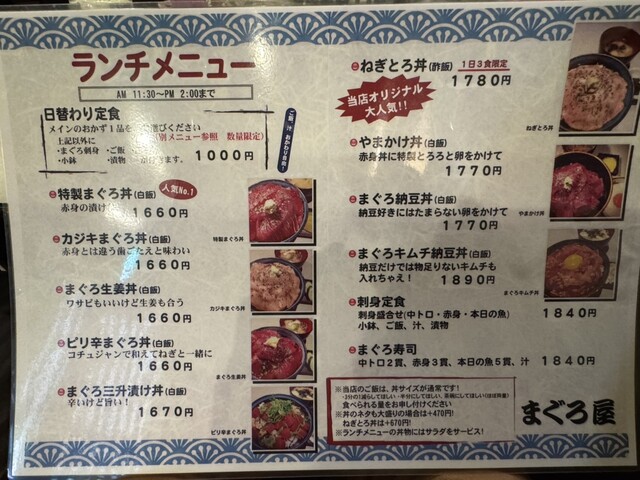 ランチメニュー
AM 11:30～PM 2:00まで
日替わり定食
メインのおかず1品を
びください
上記以外に
(別メニュー参照 数量限定)
・まぐろ刺身 ・ご飯
・小鉢 ・漬物
1000円
ご飯、汁 おかわり自由!
特製まぐろ丼(白飯)
人気No.1
赤身の漬け
1660円
特製まぐろ丼
カジキまぐろ丼(白飯)
赤身とは違う歯ごたえと味わい
1660円
カジキまぐろ丼
まぐろ生姜丼(白飯)
ワサビもいいけど生姜も合う
1660円
まぐろ生姜丼
ピリ辛まぐろ丼(白飯)
コチュジャンで和えてねぎと一緒に
1660円
まぐろ三升漬け丼(白飯)
辛いけど旨い!
1670円
ピリ辛まぐろ丼
ねぎとろ丼(酢飯) 1日3食限定
1780円
当店オリジナル
大人気!!
ねぎとろ丼
やまかけ丼(白飯)
赤身丼に特製とろろと卵をかけて
1770円
やまかけ丼
まぐろ納豆丼(白飯)
納豆好きにはたまらない卵をかけて
1770円
まぐろキムチ納豆丼(白飯)
納豆だけでは物足りないキムチも
入れちゃえ! 1890円
まぐろキムチ丼
刺身定食
刺身盛合せ(中トロ・赤身・本日の魚) 1840円
小鉢、ご飯、汁、漬物
まぐろ寿司
中トロ2貫、赤身3貫、本日の魚5貫、汁 1840円
※当店のご飯は、丼サイズが通常です!
食べられる量をお申し付けください
※丼のネタも大盛りの場合は+470円!
ねぎとろ丼は+670円!
※ランチメニューの丼物にはサラダをサービス!
まぐろ屋